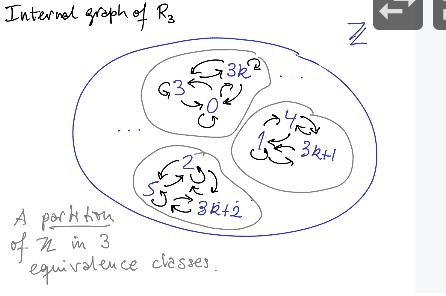 Internal graph of R₃
ℤ
3k
...
3
0
4
1
3k+1
...
2
5
3k+2
A partition
of ℤ in 3
equivalence classes.